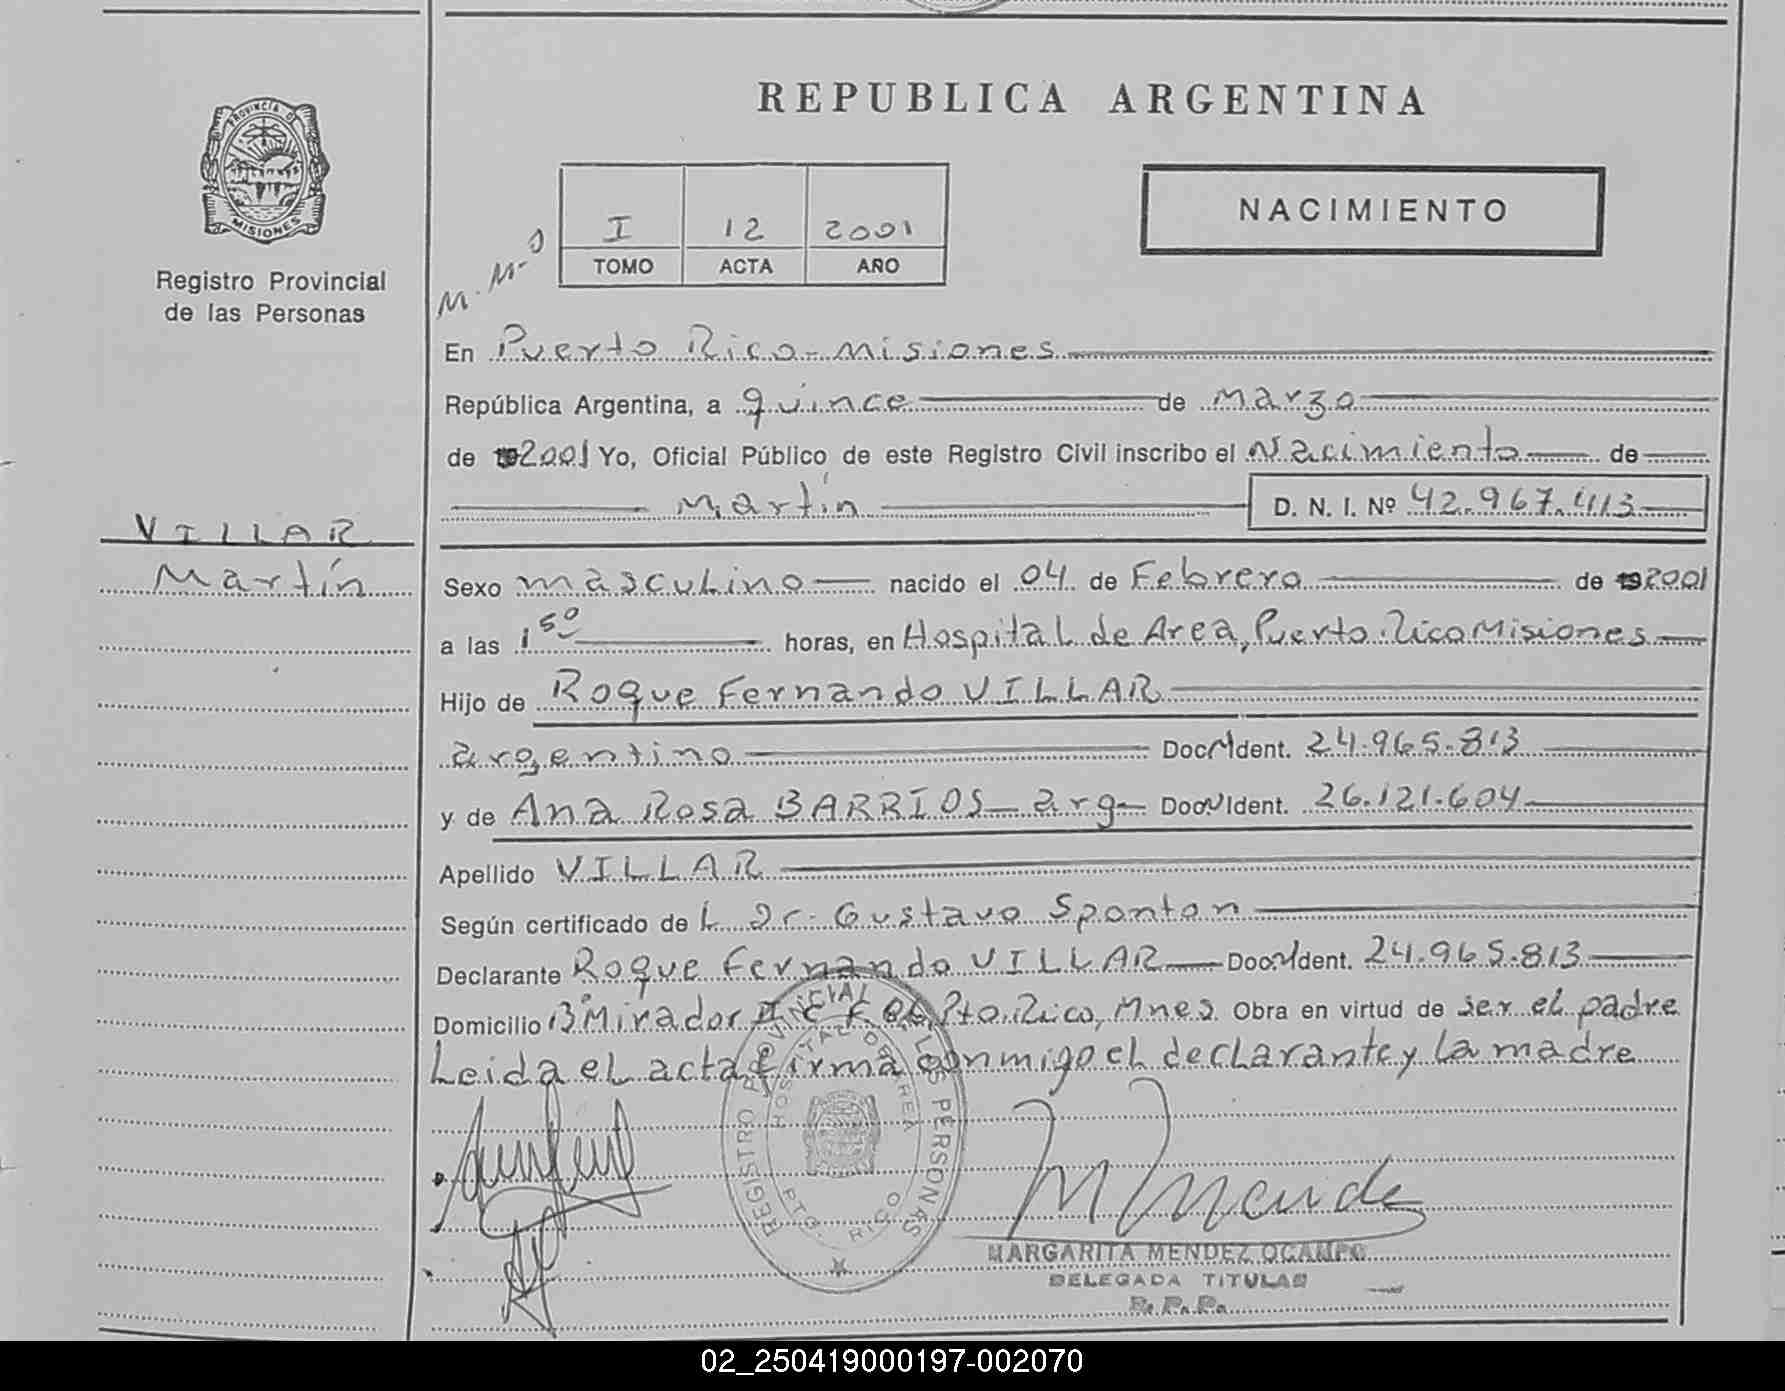 REPUBLICA ARGENTINA
PROVINCIA DE
MISIONES
Registro Provincial
de las Personas
I 12 2001
TOMO ACTA AÑO
NACIMIENTO
M. M-
En Puerto Rico - Misiones
República Argentina, a quince de Marzo
de 2001 Yo, Oficial Público de este Registro Civil inscribo el Nacimiento de
Martín D. N. I. Nº 42.967.413
VILLAR
Martín
Sexo masculino nacido el 04 de Febrero de 2001
a las 1 50 horas, en Hospital de Area, Puerto Rico Misiones
Hijo de Roque Fernando VILLAR
argentino Doc. Ident. 24.965.813
y de Ana Rosa BARRIOS - arg - Doc. Ident. 26.121.604
Apellido VILLAR
Según certificado de L Dr. Gustavo Sponton
Declarante Roque Fernando VILLAR Doc. Ident. 24.965.813
Domicilio Bº Mirador II Pto. Rico, Mnes Obra en virtud de ser el padre
Leida el acta firma conmigo el declarante y la madre
REGISTRO PROVINCIAL DE LAS PERSONAS
HOSPITAL DE AREA
PTO. RICO
MARGARITA MENDEZ OCAMPO
DELEGADA TITULAR
R. P. P.
02_250419000197-002070